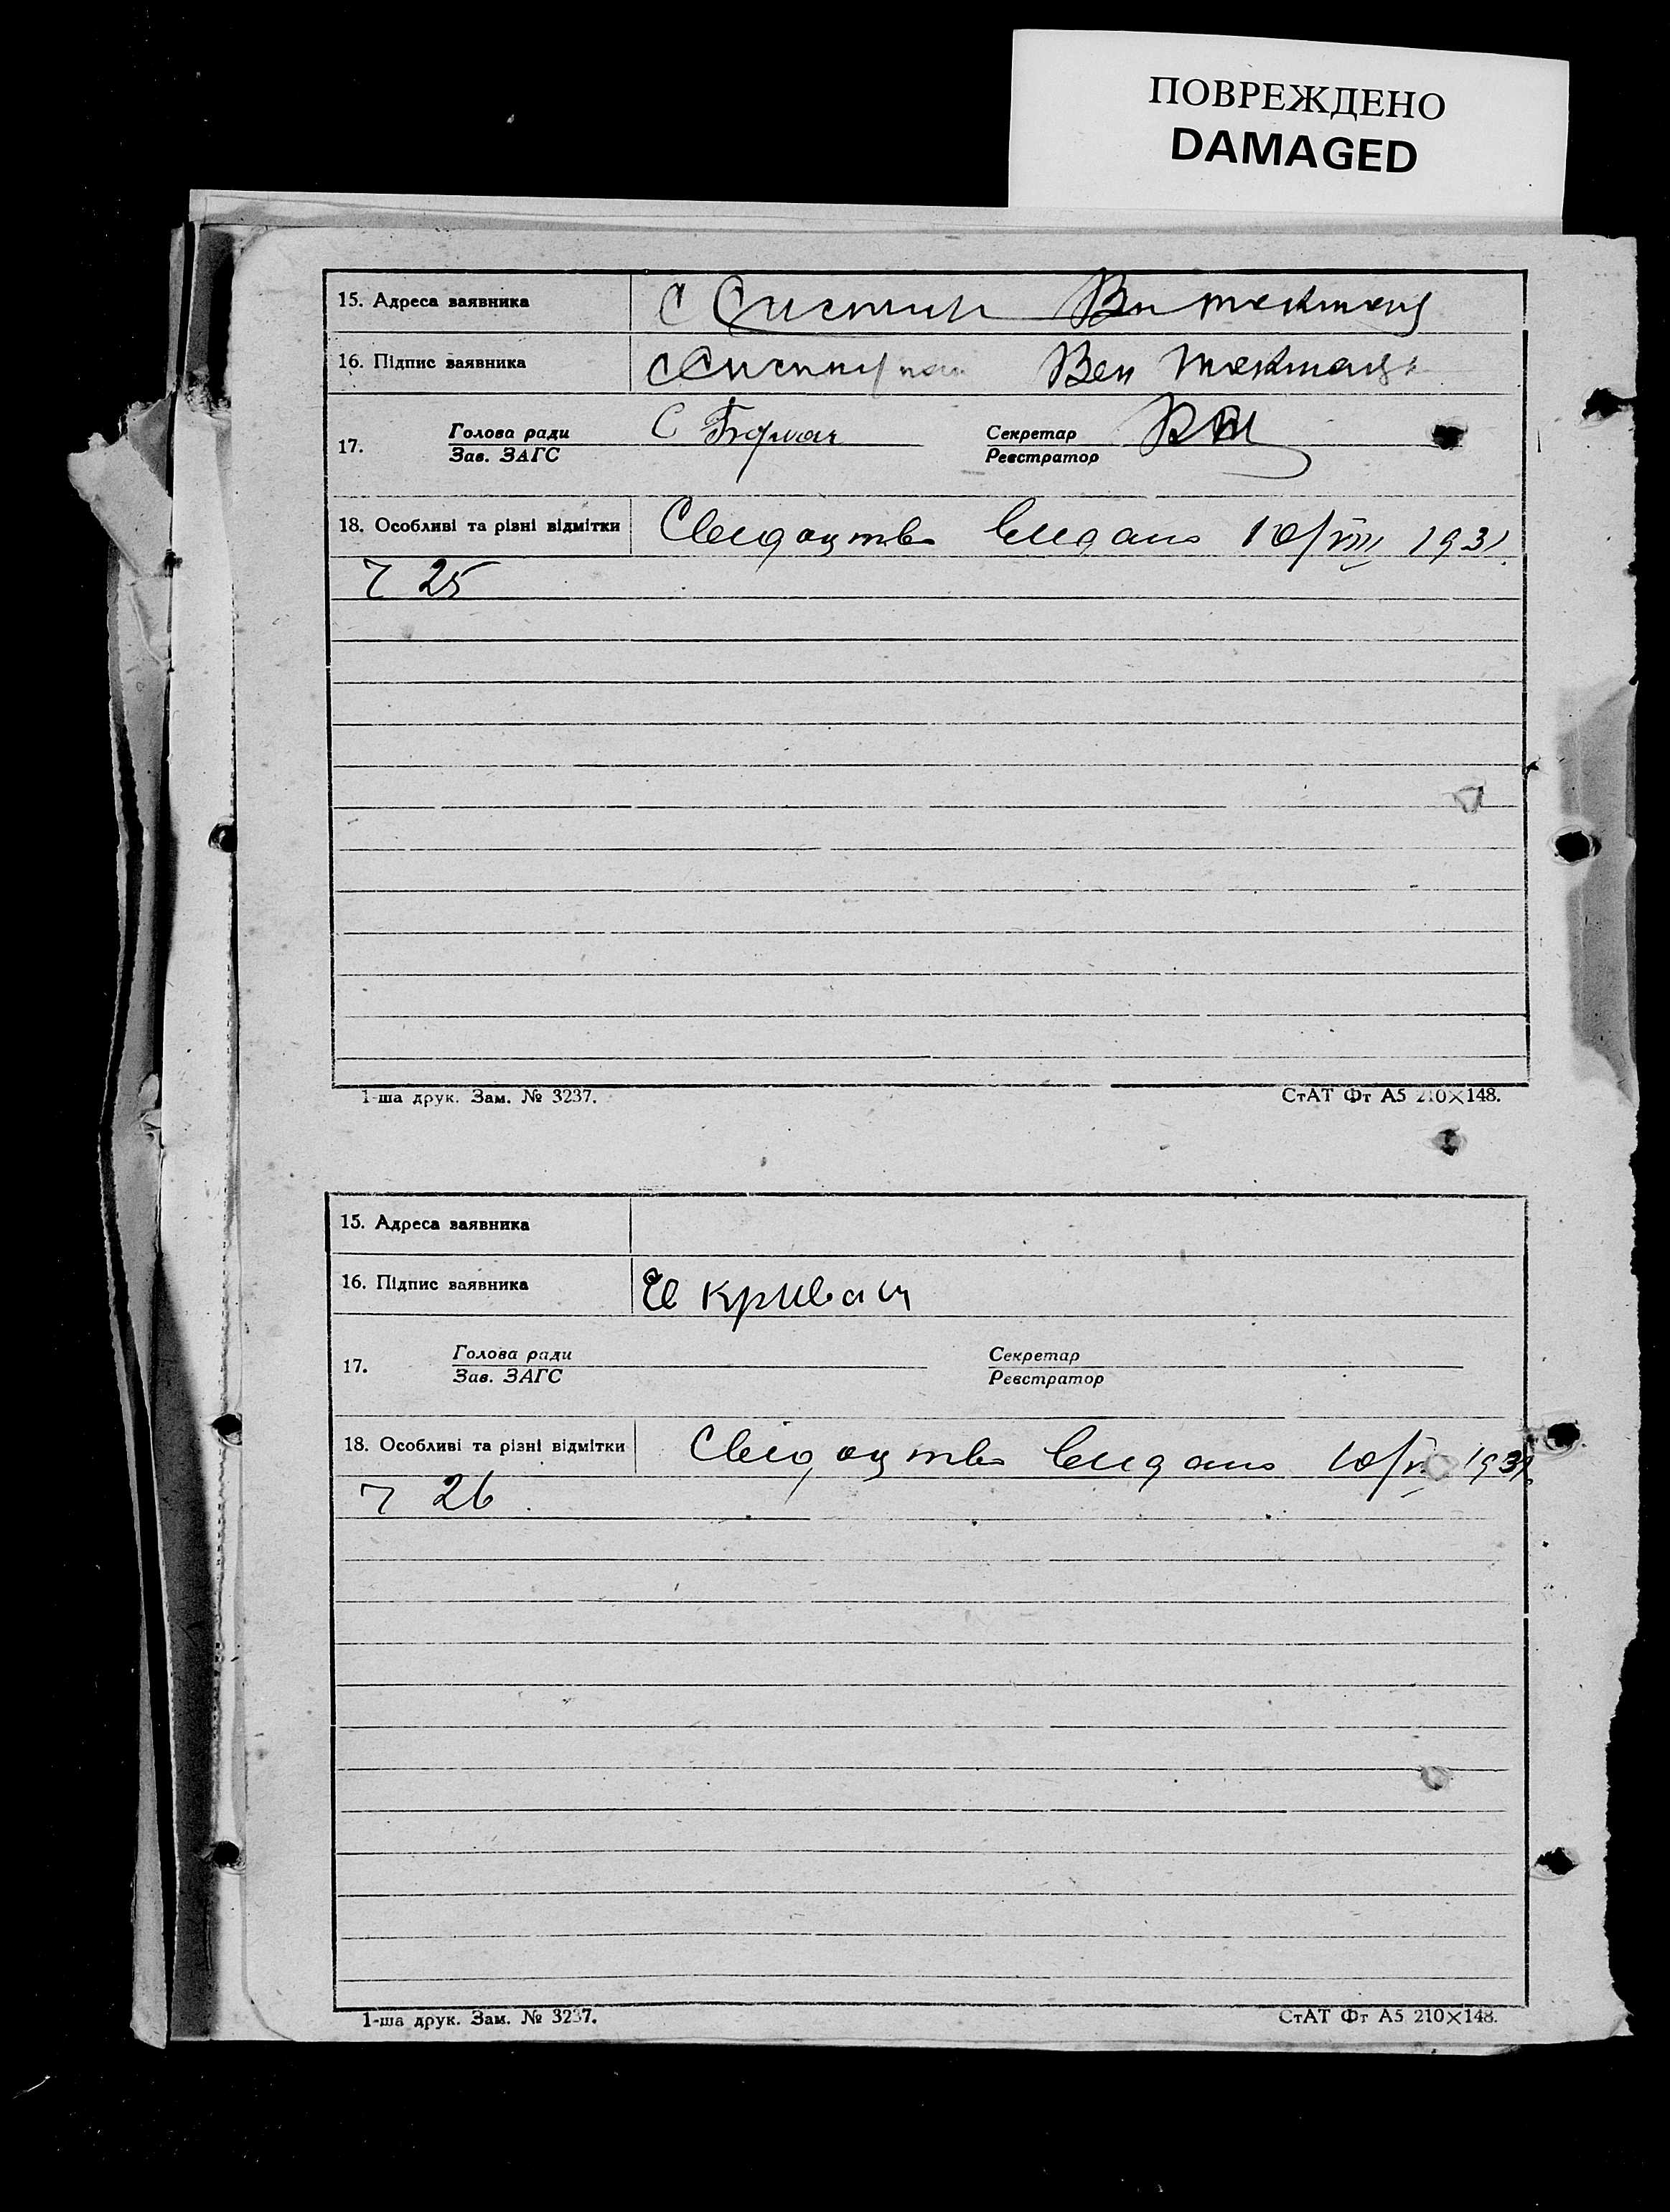 ПОВРЕЖДЕНО
DAMAGED
15. Адреса заявника С
16. Підпис заявника
17. Голова ради Секретар
Зав. ЗАГС Реєстратор
18. Особливі та різні відмітки Свидоцтво видано 10/VIII 1931
Ч 25
1-ша друк. Зам. № 3237. СтАТ Фт А5 210×148.
15. Адреса заявника
16. Підпис заявника Кривац
17. Голова ради Секретар
Зав. ЗАГС Реєстратор
18. Особливі та різні відмітки Свидоцтво видано 1931
Ч 26
1-ша друк. Зам. № 3237. СтАТ Фт А5 210×148.